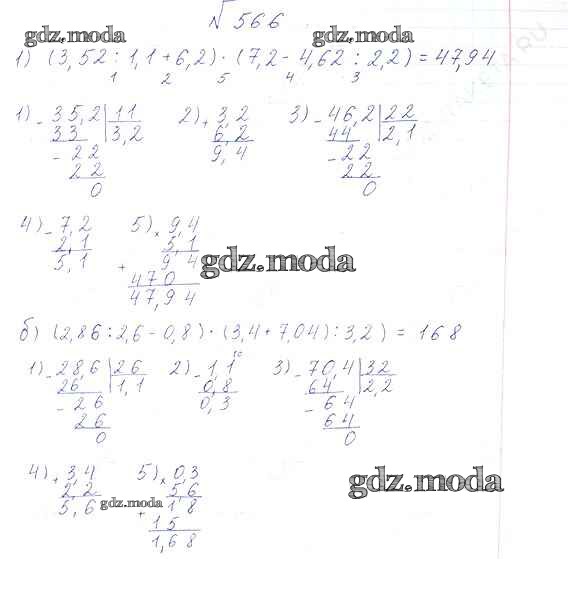 №566
gdz.moda gdz.moda
1) (3,52 : 1,1 + 6,2) · (7,2 - 4,62 : 2,2) = 47,94
1 2 5 4 3
1) - 35,2 | 11 2) + 3,2 3) - 46,2 | 22
33 3,2 6,2 44 2,1
- 22 9,4 - 22
22 22
0 0
4) - 7,2 5) × 9,4
2,1 5,1
5,1 + 9 4
470
47,94
gdz.moda
б) (2,86 : 2,6 - 0,8) · (3,4 + 7,04) : 3,2) = 168
10
1) - 28,6 | 26 2) - 1,1 3) - 70,4 | 32
26 1,1 0,8 64 2,2
- 26 0,3 - 64
26 64
0 0
4) + 3,4 5) × 0,3
2,2 56
5,6 + 18
15
1,68
gdz.moda gdz.moda